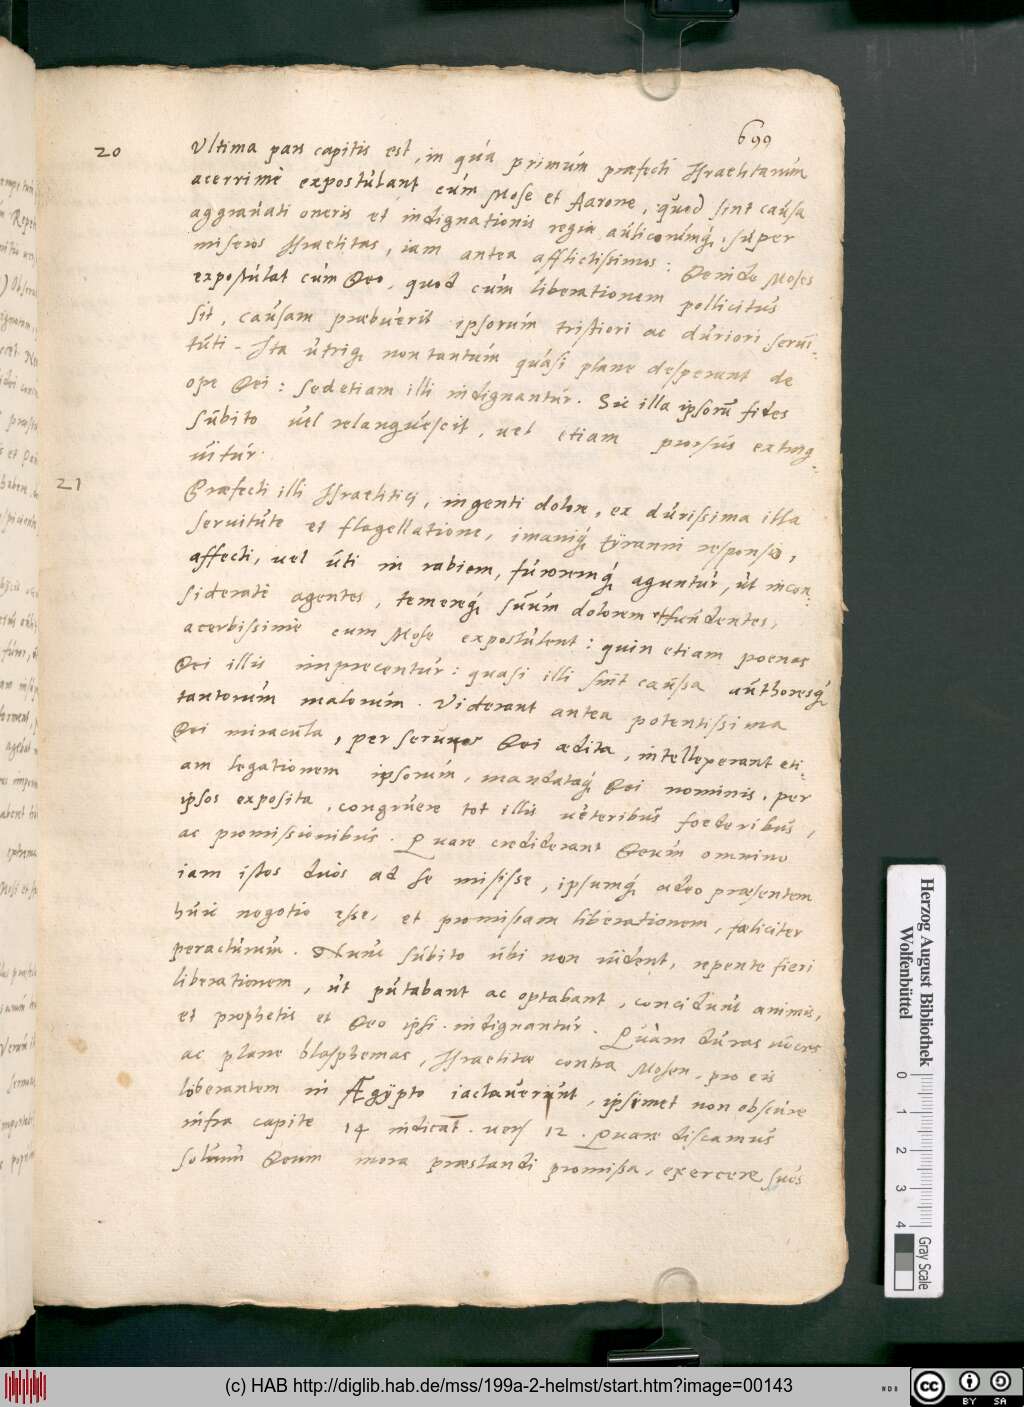 699
20 Ultima pars capitis est, in qua primum præfecti Israelitarum
acerrimè expostulant cum Mose et Aarone, quod sint causa
aggravati oneris et indignationis regiæ aulicorumq́, super
miseros Israelitas, iam antea afflictissimos: Deinde Moses
expostulat cum Deo, quod cum liberationem pollicitus
sit, causam præbuerit ipsorum tristiori ac duriori servi-
tuti. Ita utriq́ non tantum quasi plane desperant de
ope Dei: sed etiam illi indignantur. Sic illa ipsorū fides
subito vel relanguescit, vel etiam prorsus exting-
uitur.
21 Præfecti illi Israelitici, ingenti dolore, ex durissima illa
servitute et flagellatione, imaniq́ tÿranni responsio,
affecti, vel uti in rabiem, furoremq́ aguntur, ut incon-
siderate agentes, temereq́ suum dolorem effundentes,
acerbissimè cum Mose expostulent: quin etiam poenas
Dei illis imprecentur: quasi illi sint caussa authoresq́
tantorum malorum. Viderant antea potentissima
Dei miracula, per servos Dei ædita, intellexerant eti-
am legationem ipsorum, mandataq́ Dei nominis, per
ipsos exposita, congruere tot illis veteribus foederibus,
ac promissionibus. Quare crediderant Deum omnino
iam istos duos ad se misisse, ipsumq́ adeo præsentem
huic negotio esse, et promissam liberationem, fæliciter
peracturum. Nunc subito ubi non vident, repente fieri
liberationem, ut putabant ac optabant, concidunt animis,
et prophetis et Deo ipsi indignantur. Quàm duras voces
ac plane blasphemas, Israelitæ contra Mosen, pro eis
liberantem in Ægÿpto iactaverunt, ipsimet non obscure
infra capite 14 indicāt. vers 12. Quare discamus
solum Deum mora præstandi promissa, exercere suos
Herzog August Bibliothek
Wolfenbüttel
0 1 2 3 4
Gray Scale
(c) HAB http://diglib.hab.de/mss/199a-2-helmst/start.htm?image=00143
cc BY SA